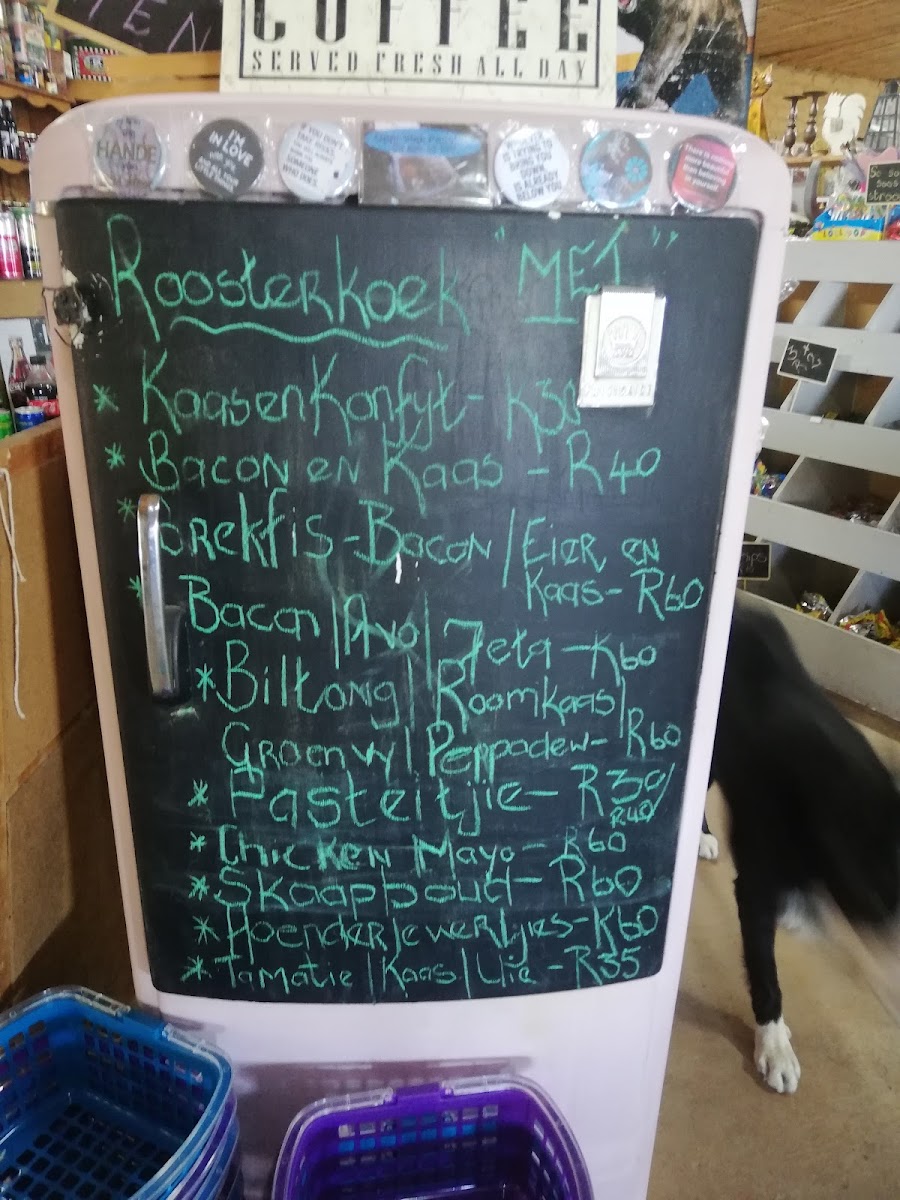 COFFEE
SERVED FRESH ALL DAY
HANDE
I'M IN LOVE
SOMEONE WHO DOES.
IS TRYING TO
BRING YOU
DOWN,
IS ALREADY
BELOW YOU
Roosterkoek "MET"
* Kaas en Konfyt - R30
* Bacon en Kaas - R40
* Brekfis - Bacon / Eier en
Kaas - R60
* Bacon / Avo / Feta - R60
* Biltong / Roomkaas /
Groenvy / Peppadew - R60
* Pasteitjie - R30/
R40
* Chicken Mayo - R60
* Skaapboud - R60
* Hoenderlewertjies - R60
* Tamatie / Kaas / Uie - R35